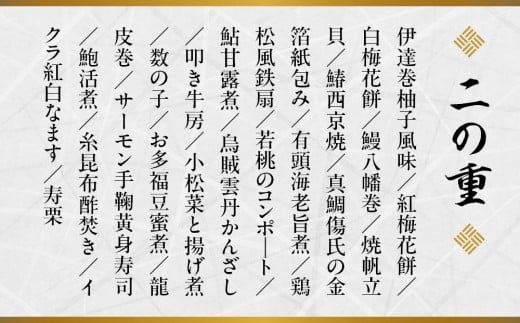 二の重
伊達巻柚子風味／紅梅花餅／
白梅花餅／鰻八幡巻／焼帆立
貝／鰆西京焼／真鯛傷氏の金
箔紙包み／有頭海老旨煮／鶏
松風鉄扇／若桃のコンポート／
鮎甘露煮／烏賊雲丹かんざし
／叩き牛房／小松菜と揚げ煮
／数の子／お多福豆蜜煮／龍
皮巻／サーモン手鞠黄身寿司
／鮑活煮／糸昆布酢焚き／イ
クラ紅白なます／寿栗